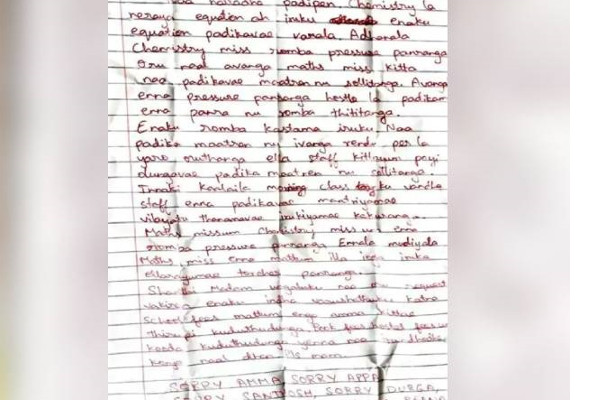 naladhe padipen. Chemistry la
neraya equation ah iruku enaku
equation padikavae varala. Adhanala
Chemistry miss romba pressure panranga
Oru naal avanga maths miss kitta
naa padikavae maatren nu sollitanga. Avanga
enna pressure panranga hostle la padikam
enna panra nu romba thititanga.
Enaku romba kastama iruku. Naa
padika maatren nu ivanga rendu per la
yaro oruthanga ella staff kittayum poyi
dungavae padika maatren nu sollitanga.
Innaki kaalaila morning class ku vandha
staff enna padikavae mantriyamae
vibujatu thananavae irukiyamae kekaranga.
Maths missum Chemistry miss um enna
romba pressure panranga Ennala mudiyala
Maths miss enna mattum illa inga iruka
ellarayumae torcher panranga.
Madam ungaluku naa request
vakiren enaku indha varushathuku katna
School fees mattum enga amma kitta
thirupi kuduthudunga Book fees hostel fees
kooda kuduthudunga yenna naa
konja naal dhan mam.
SORRY AMMA SORRY APPA
SORRY SANTOSH, SORRY DURGA,